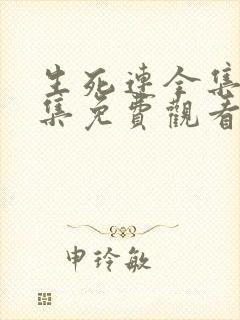 生死連全集
集免費觀看
申玲敏